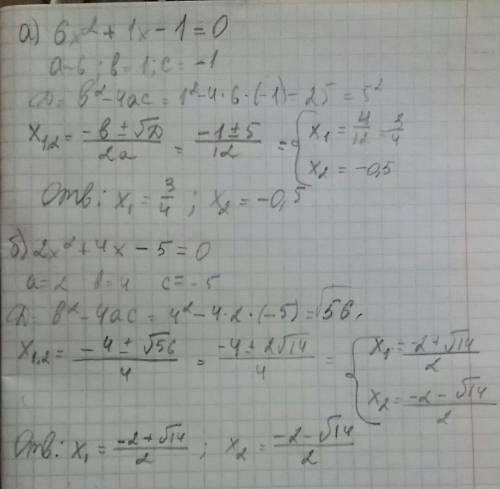 а) 6x² + 1x - 1 = 0
a=6; b=1; c=-1
D = b²-4ac = 1²-4·6·(-1) = 25 = 5²
x₁,₂ = (-b ± √D)/2a = (-1 ± 5)/12 = { x₁ = 4/12 = 3/4
x₂ = -0,5
Отв: x₁ = 3/4 ; x₂ = -0,5
б) 2x² + 4x - 5 = 0
a=2 b=4 c=-5
D = b²-4ac = 4²-4·2·(-5) = √56.
x₁,₂ = (-4 ± √56)/4 = (-4 ± 2√14)/4 = { x₁ = (-2+√14)/2
x₂ = (-2-√14)/2
Отв: x₁ = (-2+√14)/2 ; x₂ = (-2-√14)/2